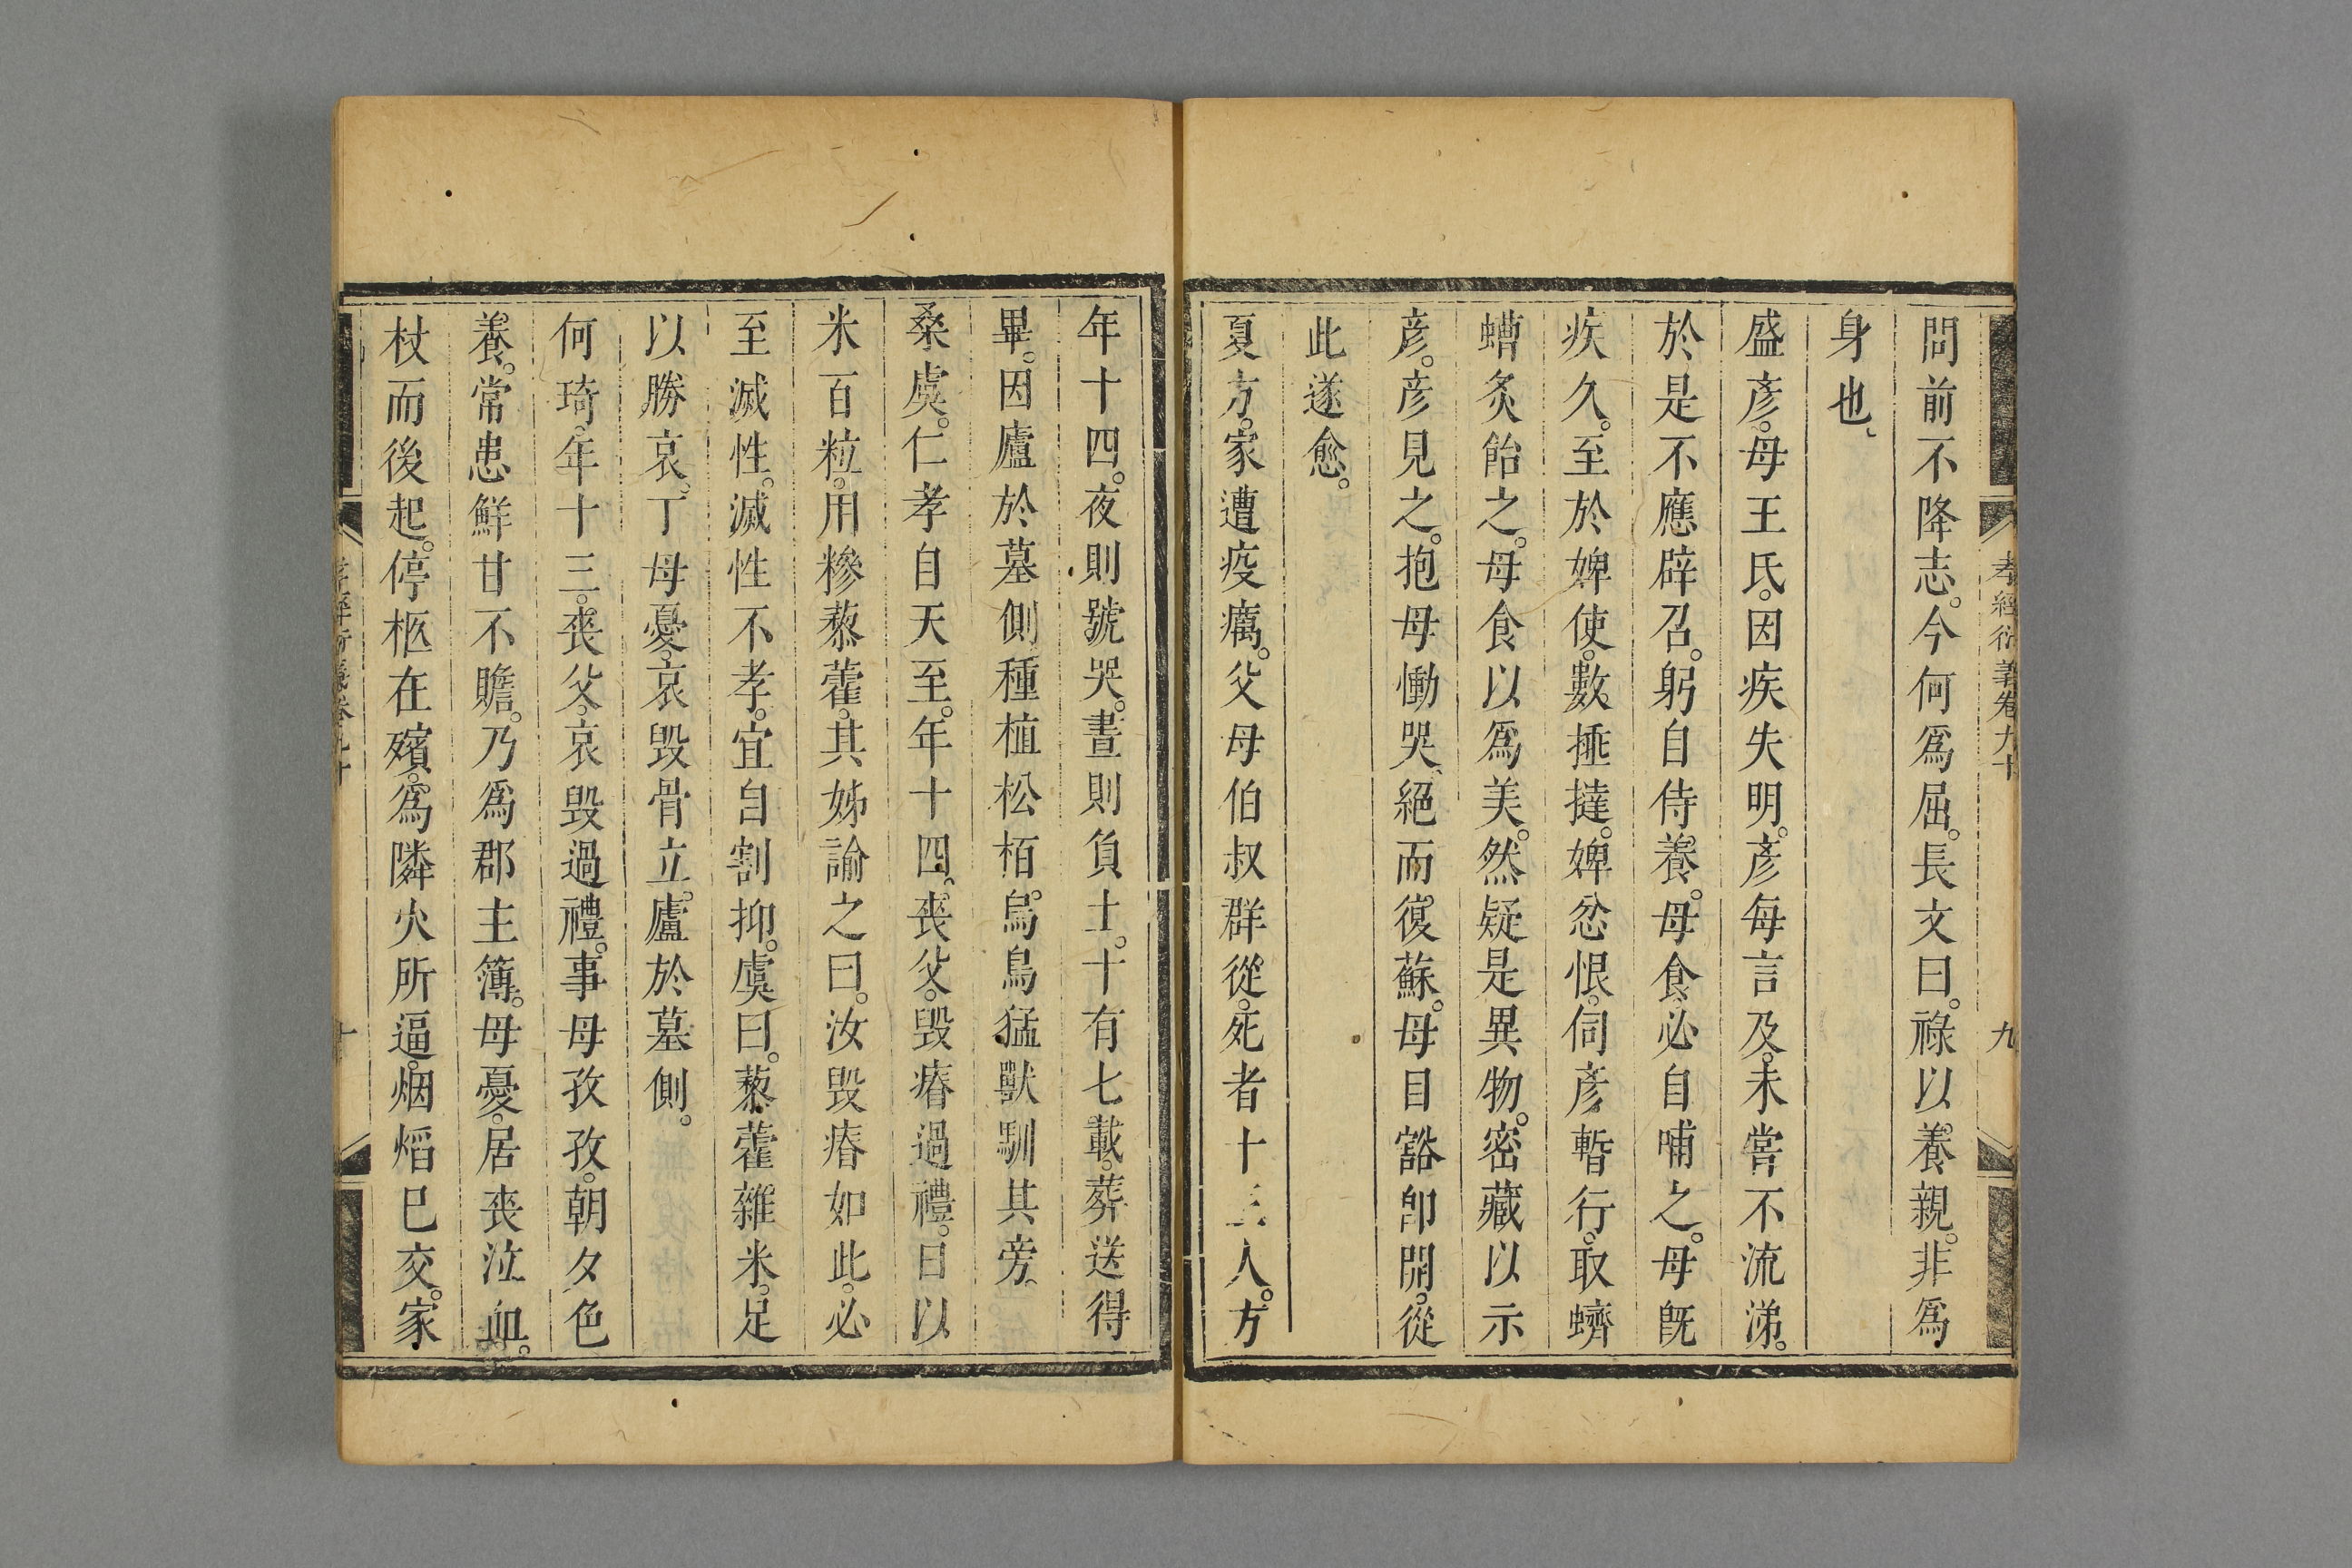 孝經衍義卷九十
九
問前不降志。今何爲屈。長文曰。祿以養親。非爲
身也。
盛彥。母王氏。因疾失明。彥每言及。未嘗不流涕。
於是不應辟召。躬自侍養。母食必自哺之。母旣
疾久。至於婢使。數捶撻。婢忿恨。伺彥暫行。取蠐
螬炙飴之。母食以爲美。然疑是異物。密藏以示
彥。彥見之。抱母慟哭。絕而復蘇。母目豁卽開。從
此遂愈。
夏方。家遭疫癘。父母伯叔群從。死者十三人。方
年十四。夜則號哭。晝則負土。十有七載。葬送得
畢。因廬於墓側。種植松栢。烏鳥猛獸馴其旁。
桑虞。仁孝自天至。年十四。喪父。毀瘠過禮。日以
米百粒。用糝藜藿。其姊諭之曰。汝毀瘠如此。必
至滅性。滅性不孝。宜自割抑。虞曰。藜藿雜米。足
以勝哀。丁母憂。哀毀骨立。廬於墓側。
何琦。年十三。喪父。哀毀過禮。事母孜孜。朝夕色
養。常患鮮甘不贍。乃爲郡主簿。母憂。居喪泣血。
杖而後起。停柩在殯。爲隣火所逼。烟熖已交。家
孝經衍義卷九十
十